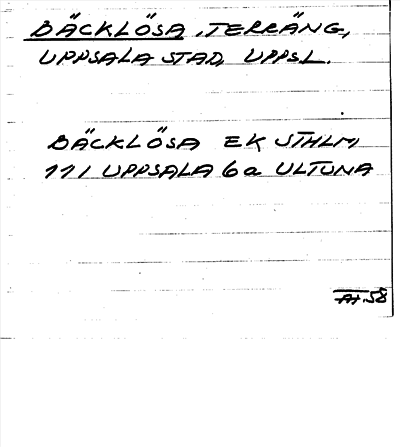 BÄCKLÖSA, TERRÄNG,
UPPSALA STAD, UPPSL.
BÄCKLÖSA EK STHLM
111 UPPSALA 6a ULTUNA
58